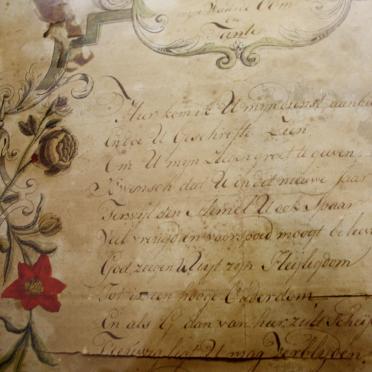 mijn Waarde Oom
en
Tante
Hier kom ik U mijn dienst aanbie
En doe U Geschrifte Zien
Om U mijn Zeegen groet te geven
Ik wensch dat U in dit nieuwe Jaar
Terwijl den Hemel U ook Spaar
Veel vreugd en voorspoed moogt beleve
God zeegen U uijt zijn Heijligdom
Tot in een hooge Ouderdom,
En als Gij dan van hier zult Scheij
U mag verblijden